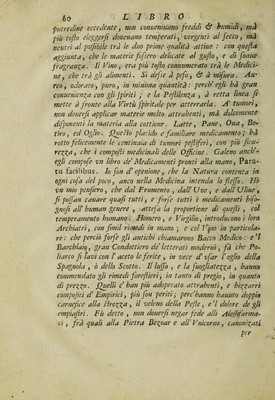 60 LIBRO
putredine eccedente, non convenivano freddi & humidi, mà
più tosto eleggersi dovevano temperati, vergenti al secco, mà
neutri al possibile trà le due prime qualità attive: con questa
aggiunta, che le materie fossero delicate al gusto, e di soave
fragranza. Il Vino, era più tosto connumerato trà le Medici-
ne, che trà gli alimenti. Si desse à peso, & à misura. Au-
reo, odorato, puro, in minima quantità: perche egli hà gran
convenienza con gli spiriti; e la Pestilenza, à retta linea si
mette à fronte alla Virtù spiritale per atterrarla. A tumori,
non dovevasi applicar materie molto attrahenti, mà dolcemente
disponenti la materia alla cottione. Latte, Pane, Ova, Bo-
tiro, ed Oglio. Questo placido e familiare medicamento; hà
rotto felicemente le centinaia di tumori pestiferi, con più sicu-
rezza, che i composti medicinali delle Officine. Galeno anch'-
egli compose un libro de' Medicamenti pronti alla mano, Para-
tu facilibus. Io son d'opinione, che la Natura contenta in
ogni cosa del poco, anco nella Medicina intenda lo stesso. Hò
un mio pensiero, che dal Frumento, dall'Uve, e dall'Ulive,
si possan cavare quasi tutti, e forse tutti i medicamenti biso-
gnosi all'human genere, attesa la proportione di questi, col
temperamento humano. Homero, e Virgilio, introducono i loro
Archiatri, con simil rimedi in mano; e col Vino in particola-
re: che perciò forse gli antichi chiamarono Bacco Medico: e'l
Barchlaiq, gran Condottiero de' letterati moderni, fà che Po-
liarco si lavi con l'aceto le ferite, in vece d'usar l'oglio della
Spagnola, ò dello Scotto. Il lusso, e la svogliatezza, hanno
commendato gli rimedi forestieri, in tanto di pregio, in quanto
di prezzo. Quelli c'han più adoperato attrahenti, e bizzarri
composti d'Empirici, più son periti; perc'hanno havuto doppio
carnefice alla Strozza, il veleno della Peste, e'l dolore de gli
empiastri. Fù detto, non doversi negar fede alli Alessifarma-
ci, frà quali alla Pietra Bezoar e all'Unicorno, canonizati
per